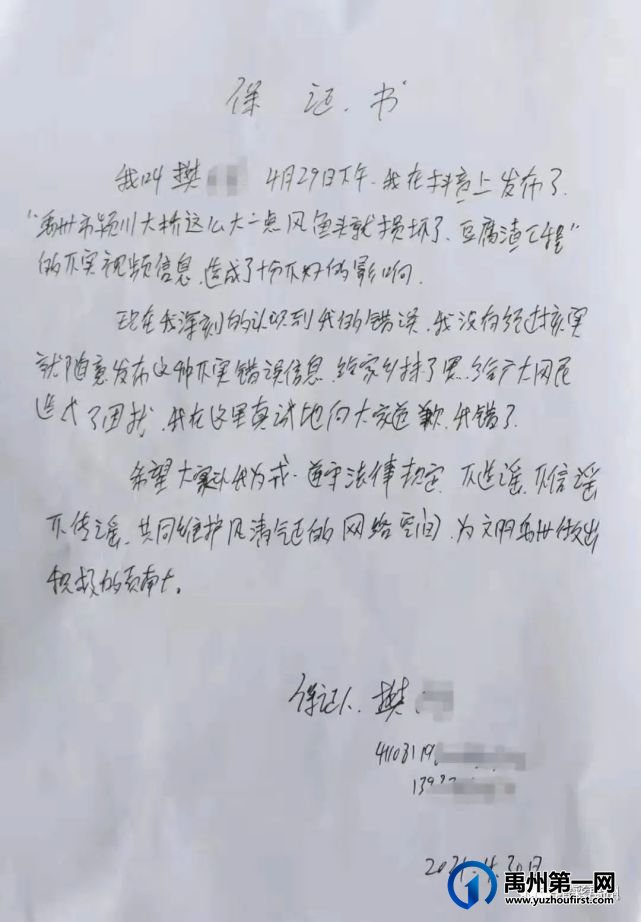 保 证 书
我叫樊 4月29日下午.我在抖音上发布了
"禹州市颍川大桥这么大一点风鱼头就损坏了.豆腐渣工程"
的不实视频信息.造成了十分不好的影响.
现在我深刻的认识到我的错误.我没有经过核实
就随意发布这种不实错误信息.给家乡抹了黑.给广大网民
造成了困扰.我在这里真诚地向大家道歉.我错了.
希望大家以我为戒.遵守法律规定.不造谣.不信谣
不传谣.共同维护风清气正的网络空间.为文明禹州作出
积极的贡献.
保证人.樊.
4108119
139
2021.4.30日
禹州第一网
www.yuzhoufirst.com